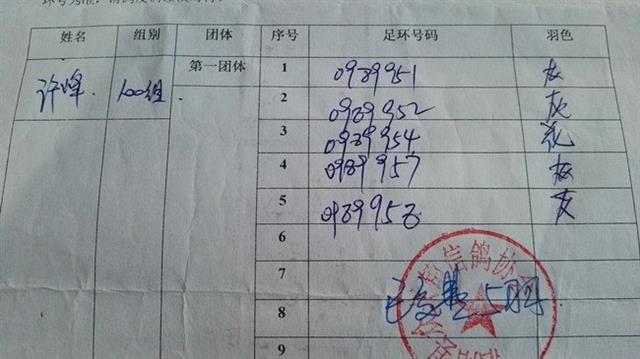 姓名 组别 团体 序号 足环号码 羽色
许峰 100组 第一团体 1 0989951 灰
2 0989952 灰
3 0989954 花
4 0989957 灰
5 灰
6
7
8
9
信鸽协